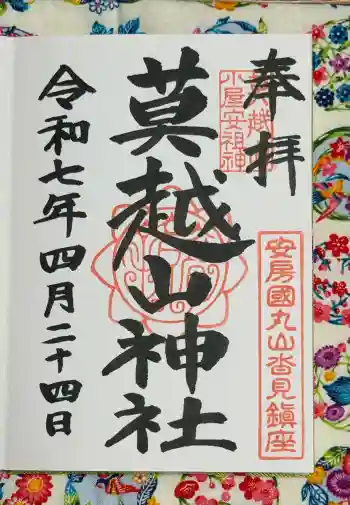 奉拝
莫越山神社
令和七年四月二十四日
安房國丸山沓見鎮座
小屋安祖神